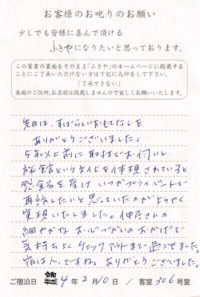 お客様のお叱りのお願い
少しでも皆様に喜んで頂ける
ふきやになりたいと思っております。
この葉書の裏面をそのまま「ふきや」のホームページに掲載する
ことにご了承いただけない方は下記に丸印をして下さい。
(了承できない)
表面のご住所、お名前は掲載しませんので宜しくお願いいたします。
先日は、すばらしいおもてなしを
ありがとうございました。
5年以上前に取材でお伺いし
旅館というものを体現されていると
感銘を受け いつかプライベートで
再訪したいと思っていたのがようやく
実現いたしました。仲居さんの
細やかなお心づかいのおかげで
気持ちよくチェックアウトまで過ごせました。
ありがとうございました。
ご宿泊日 4年2月10日/客室306号室